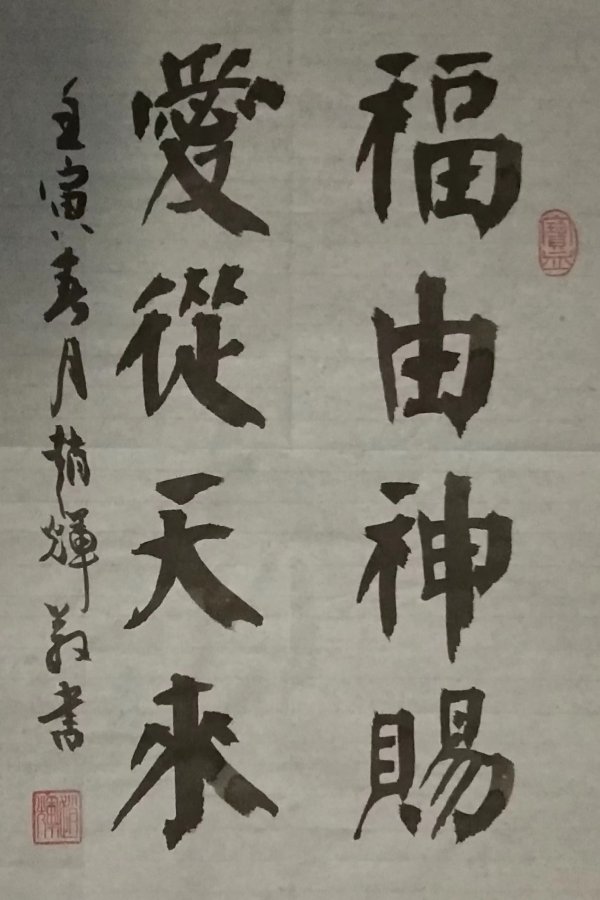 福由神賜
愛從天來
壬寅春月趙輝敬書